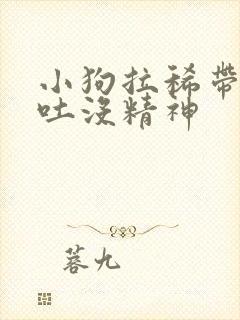 小狗拉稀带
吐没精神
菩九